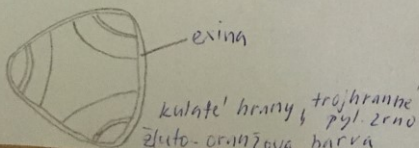 exina
kulaté hrany, trojhranné
pyl. zrno
žluto-oranžová barva